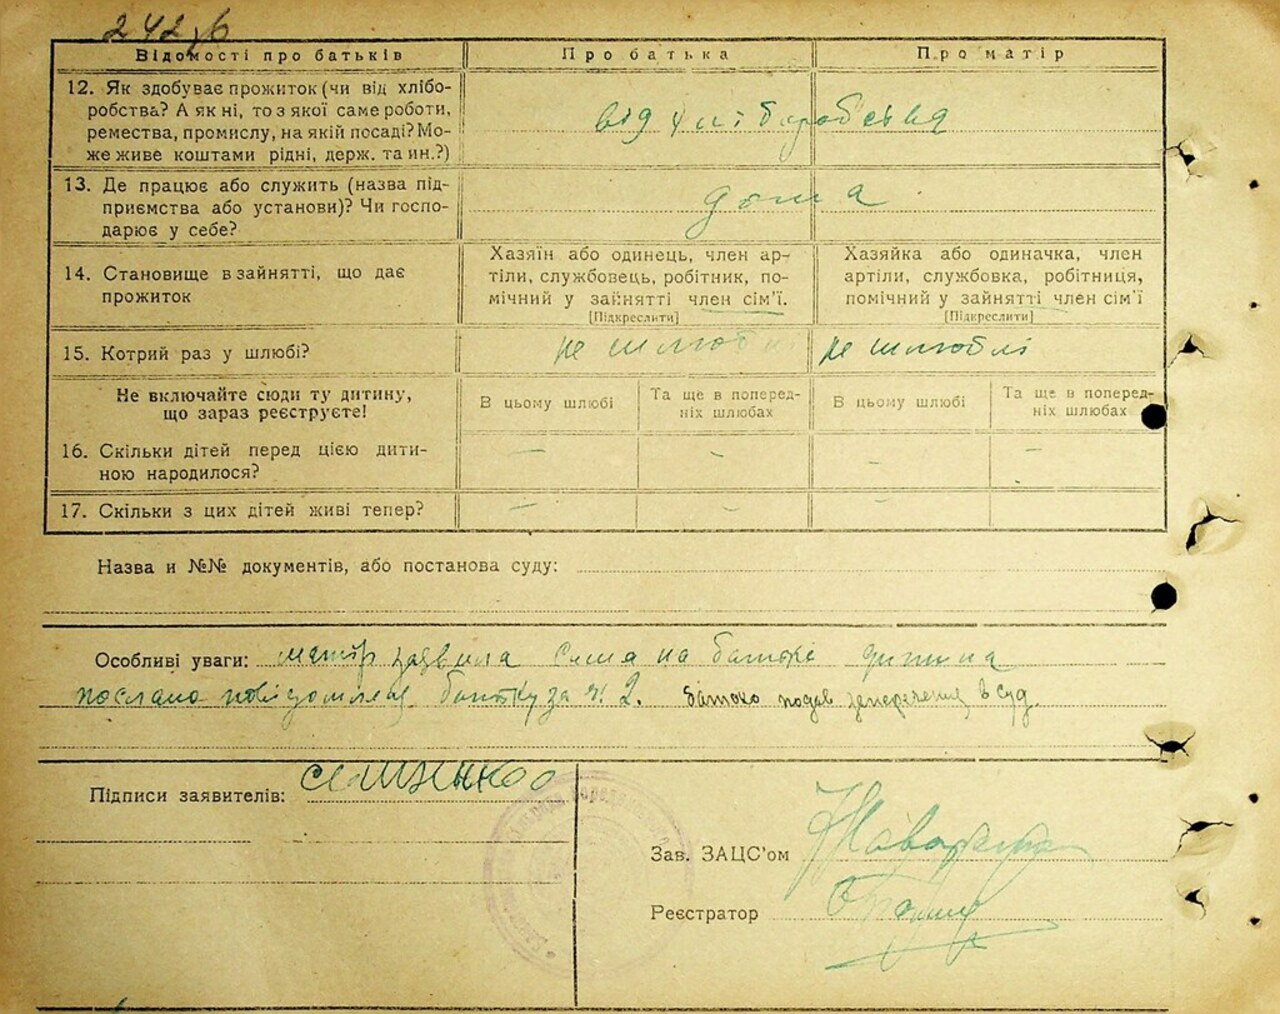 242,б
Відомості про батьків Про батька Про матір
12. Як здобуває прожиток (чи від хлібо-
робства? А як ні, то з якої саме роботи,
ремества, промислу, на якій посаді? Мо-
же живе коштами рідні, держ. та ин.?)
від хліборобства
13. Де працює або служить (назва під-
приємства або установи)? Чи госпо-
дарює у себе?
дома
14. Становище в зайнятті, що дає
прожиток
Хазяїн або одинець, член ар-
тіли, службовець, робітник, по-
мічний у зайнятті член сім'ї.
[Підкреслити]
Хазяйка або одиначка, член
артіли, службовка, робітниця,
помічний у зайнятті член сім'ї
[Підкреслити]
15. Котрий раз у шлюбі? не шлюбні не шлюблі
Не включайте сюди ту дитину,
що зараз реєструєте!
В цьому шлюбі
Та ще в поперед-
ніх шлюбах
В цьому шлюбі
Та ще в поперед-
ніх шлюбах
16. Скільки дітей перед цією дити-
ною народилося?
– – – –
17. Скільки з цих дітей живі тепер?
– – –
Назва и №№ документів, або постанова суду:
Особливі уваги: матір заявила сама на батька дитина
послано повідомлення батьку за ч. 2. батько подав заперечення в суд.
Підписи заявителів:
Зав. ЗАЦС'ом
Реєстратор